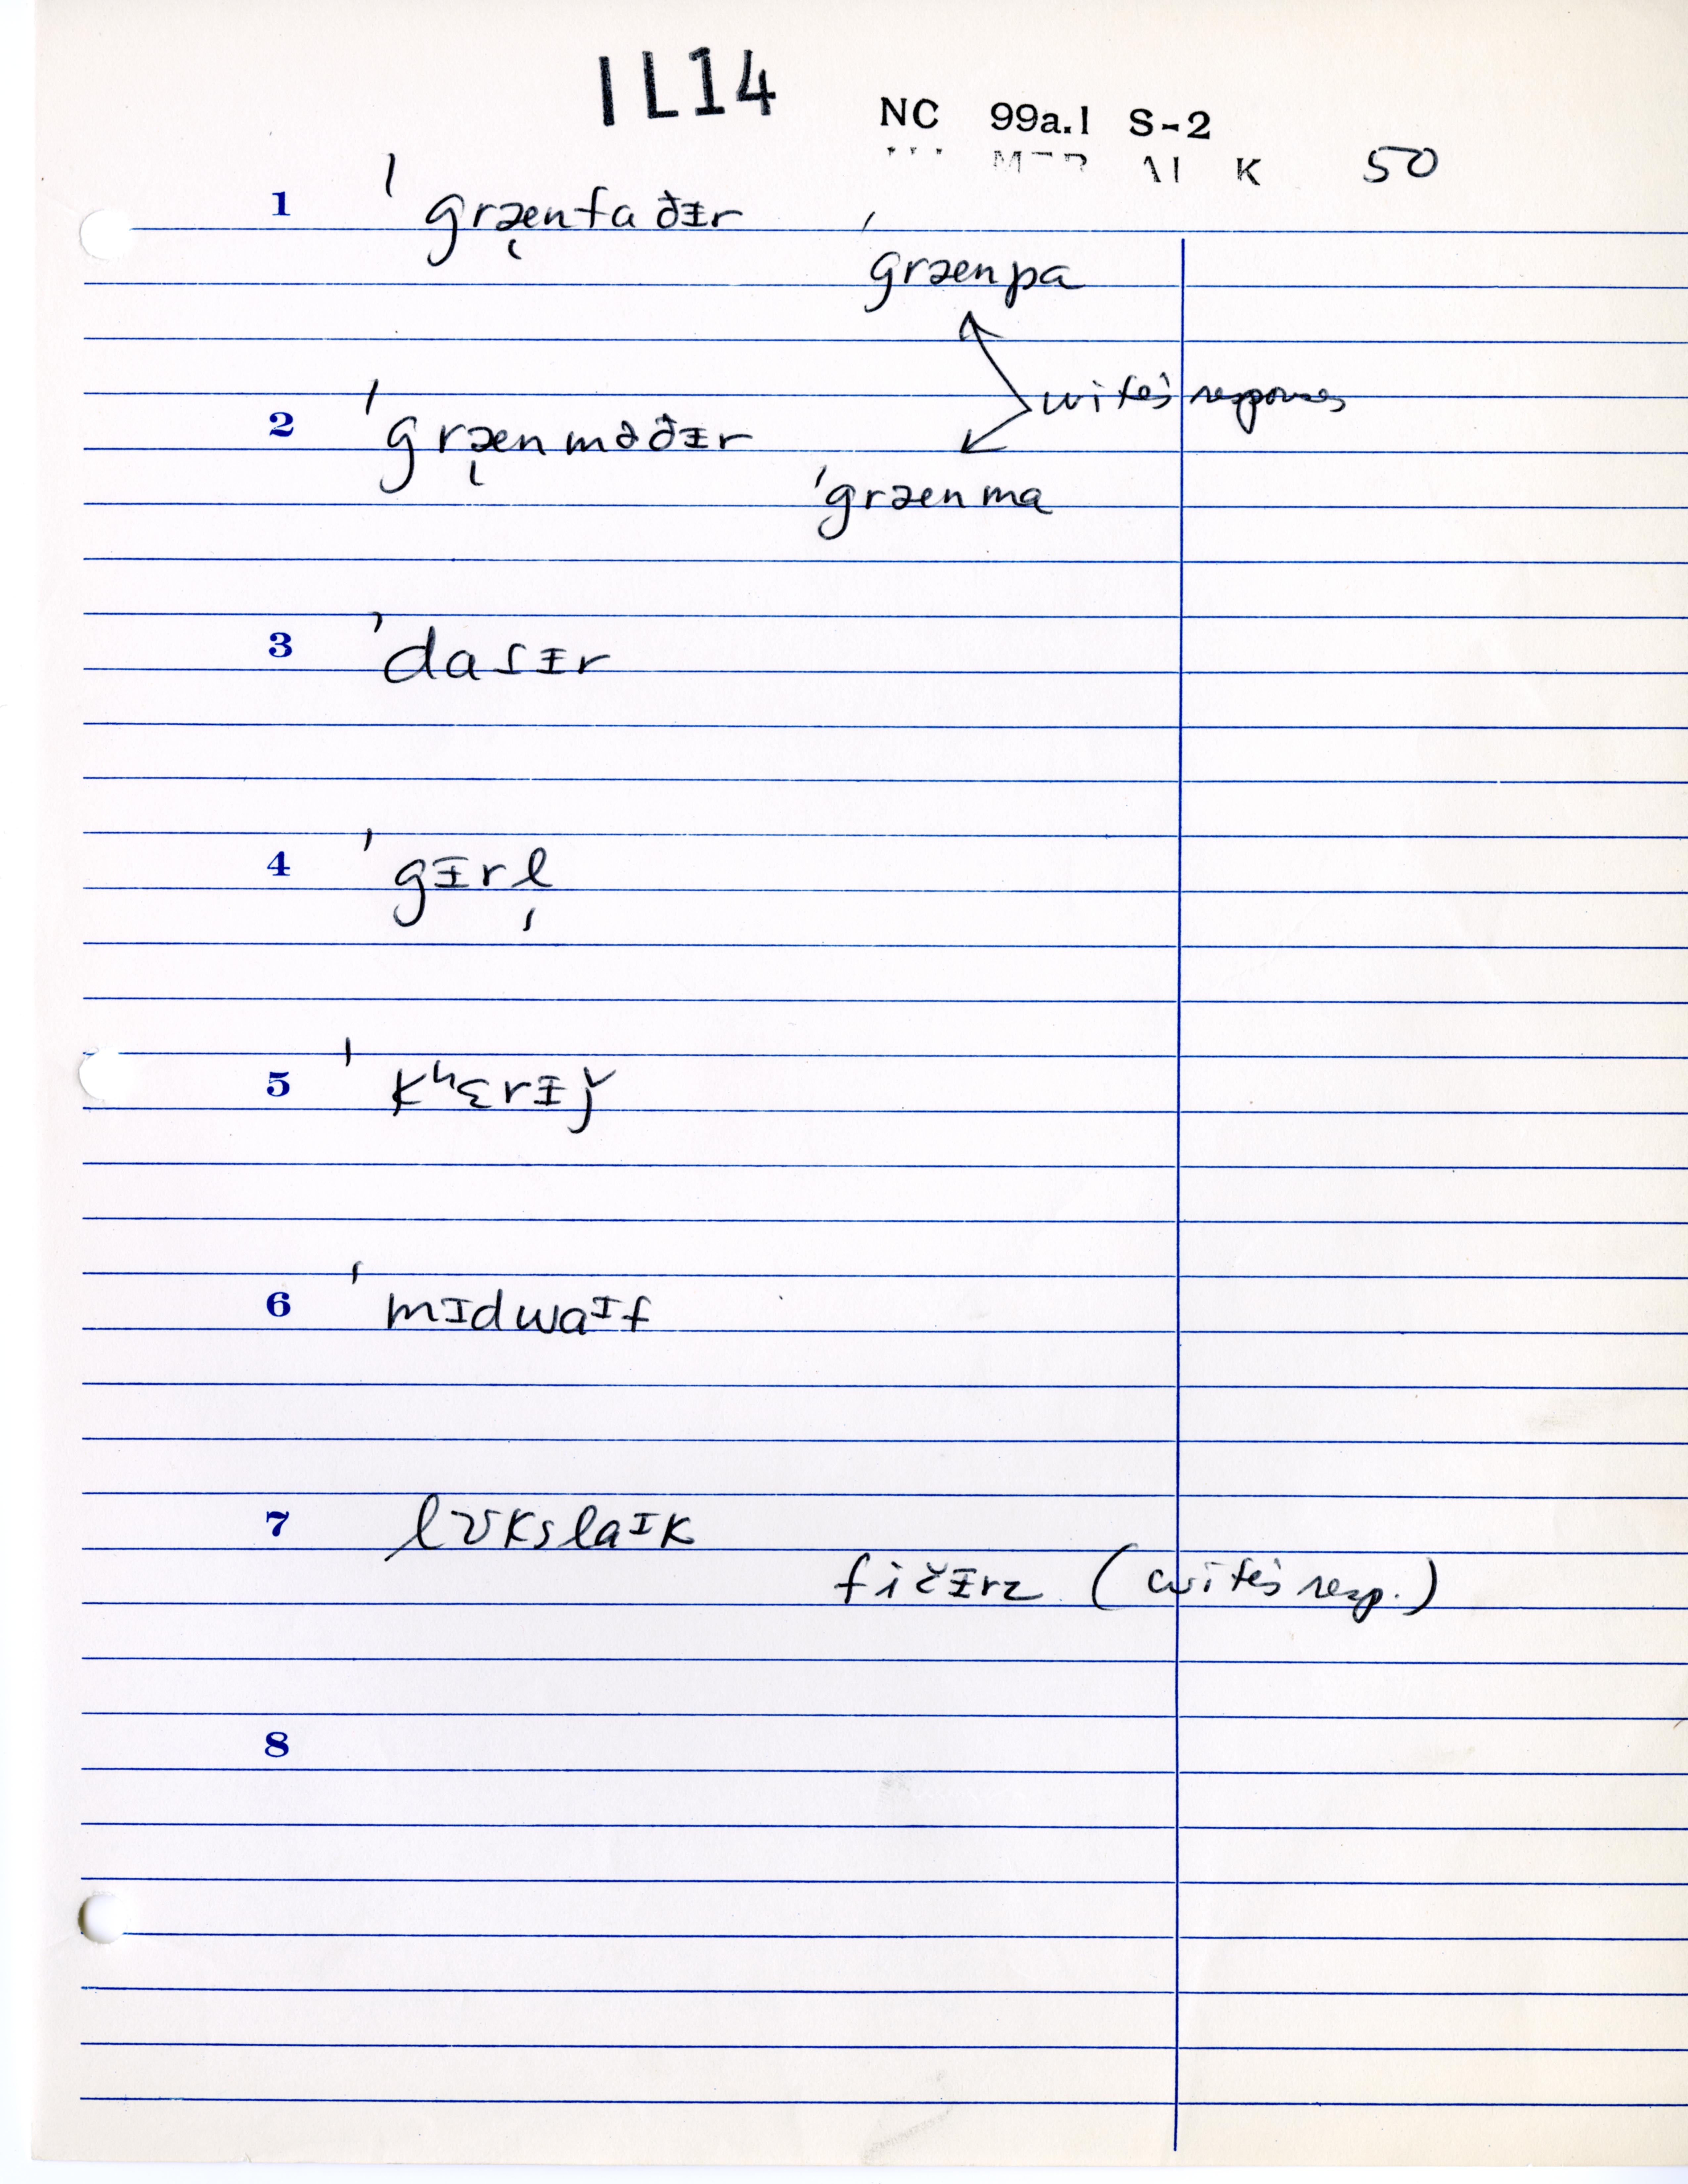 IL14
NC 99a.1 S-2
50
1 ˈgrænfaðɨr
ˈgrænpa
wife's responses
2 ˈgrænməðɨr
ˈgrænma
3 ˈdaɾɨr
4 ˈgɨrl̩
5 ˈkʰɛrɨǰ
6 ˈmɪdwaᶦf
7 lʊkslaᶦk
fičɨrz (wife's resp.)
8